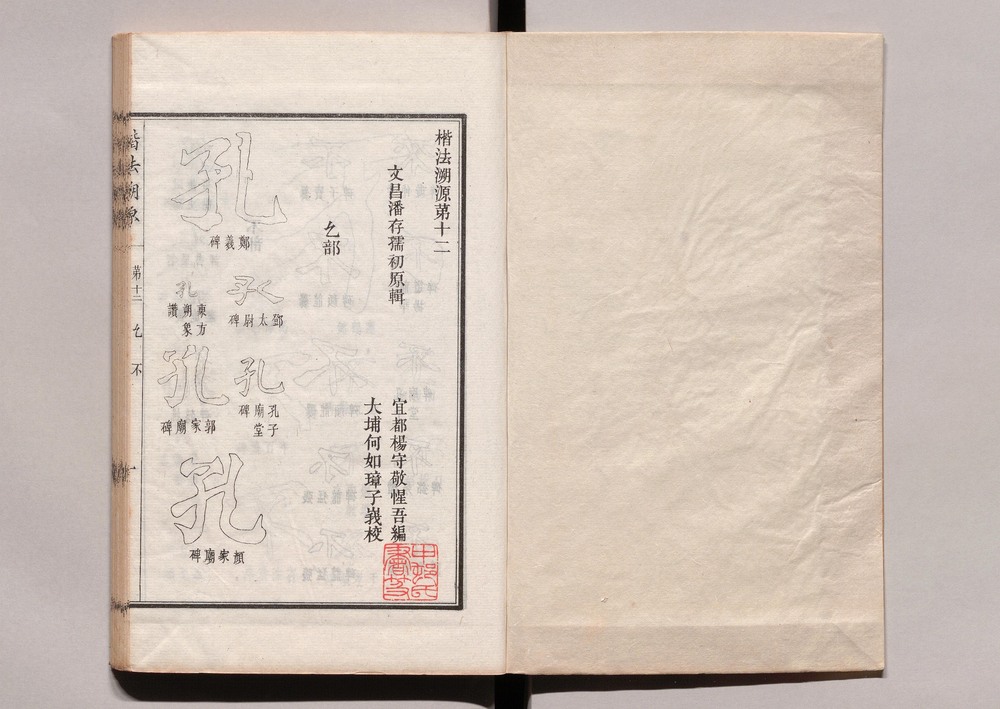 楷法溯源第十二
文昌潘存孺初原輯
宜都楊守敬惺吾編
大埔何如璋子峩校
乞部
孔
鄭羲碑
孔
鄧太尉碑
孔
孔子廟堂碑
孔
東方朔象讚
孔
郭家廟碑
孔
顏家廟碑
楷法溯原
第十二
乞
不
一